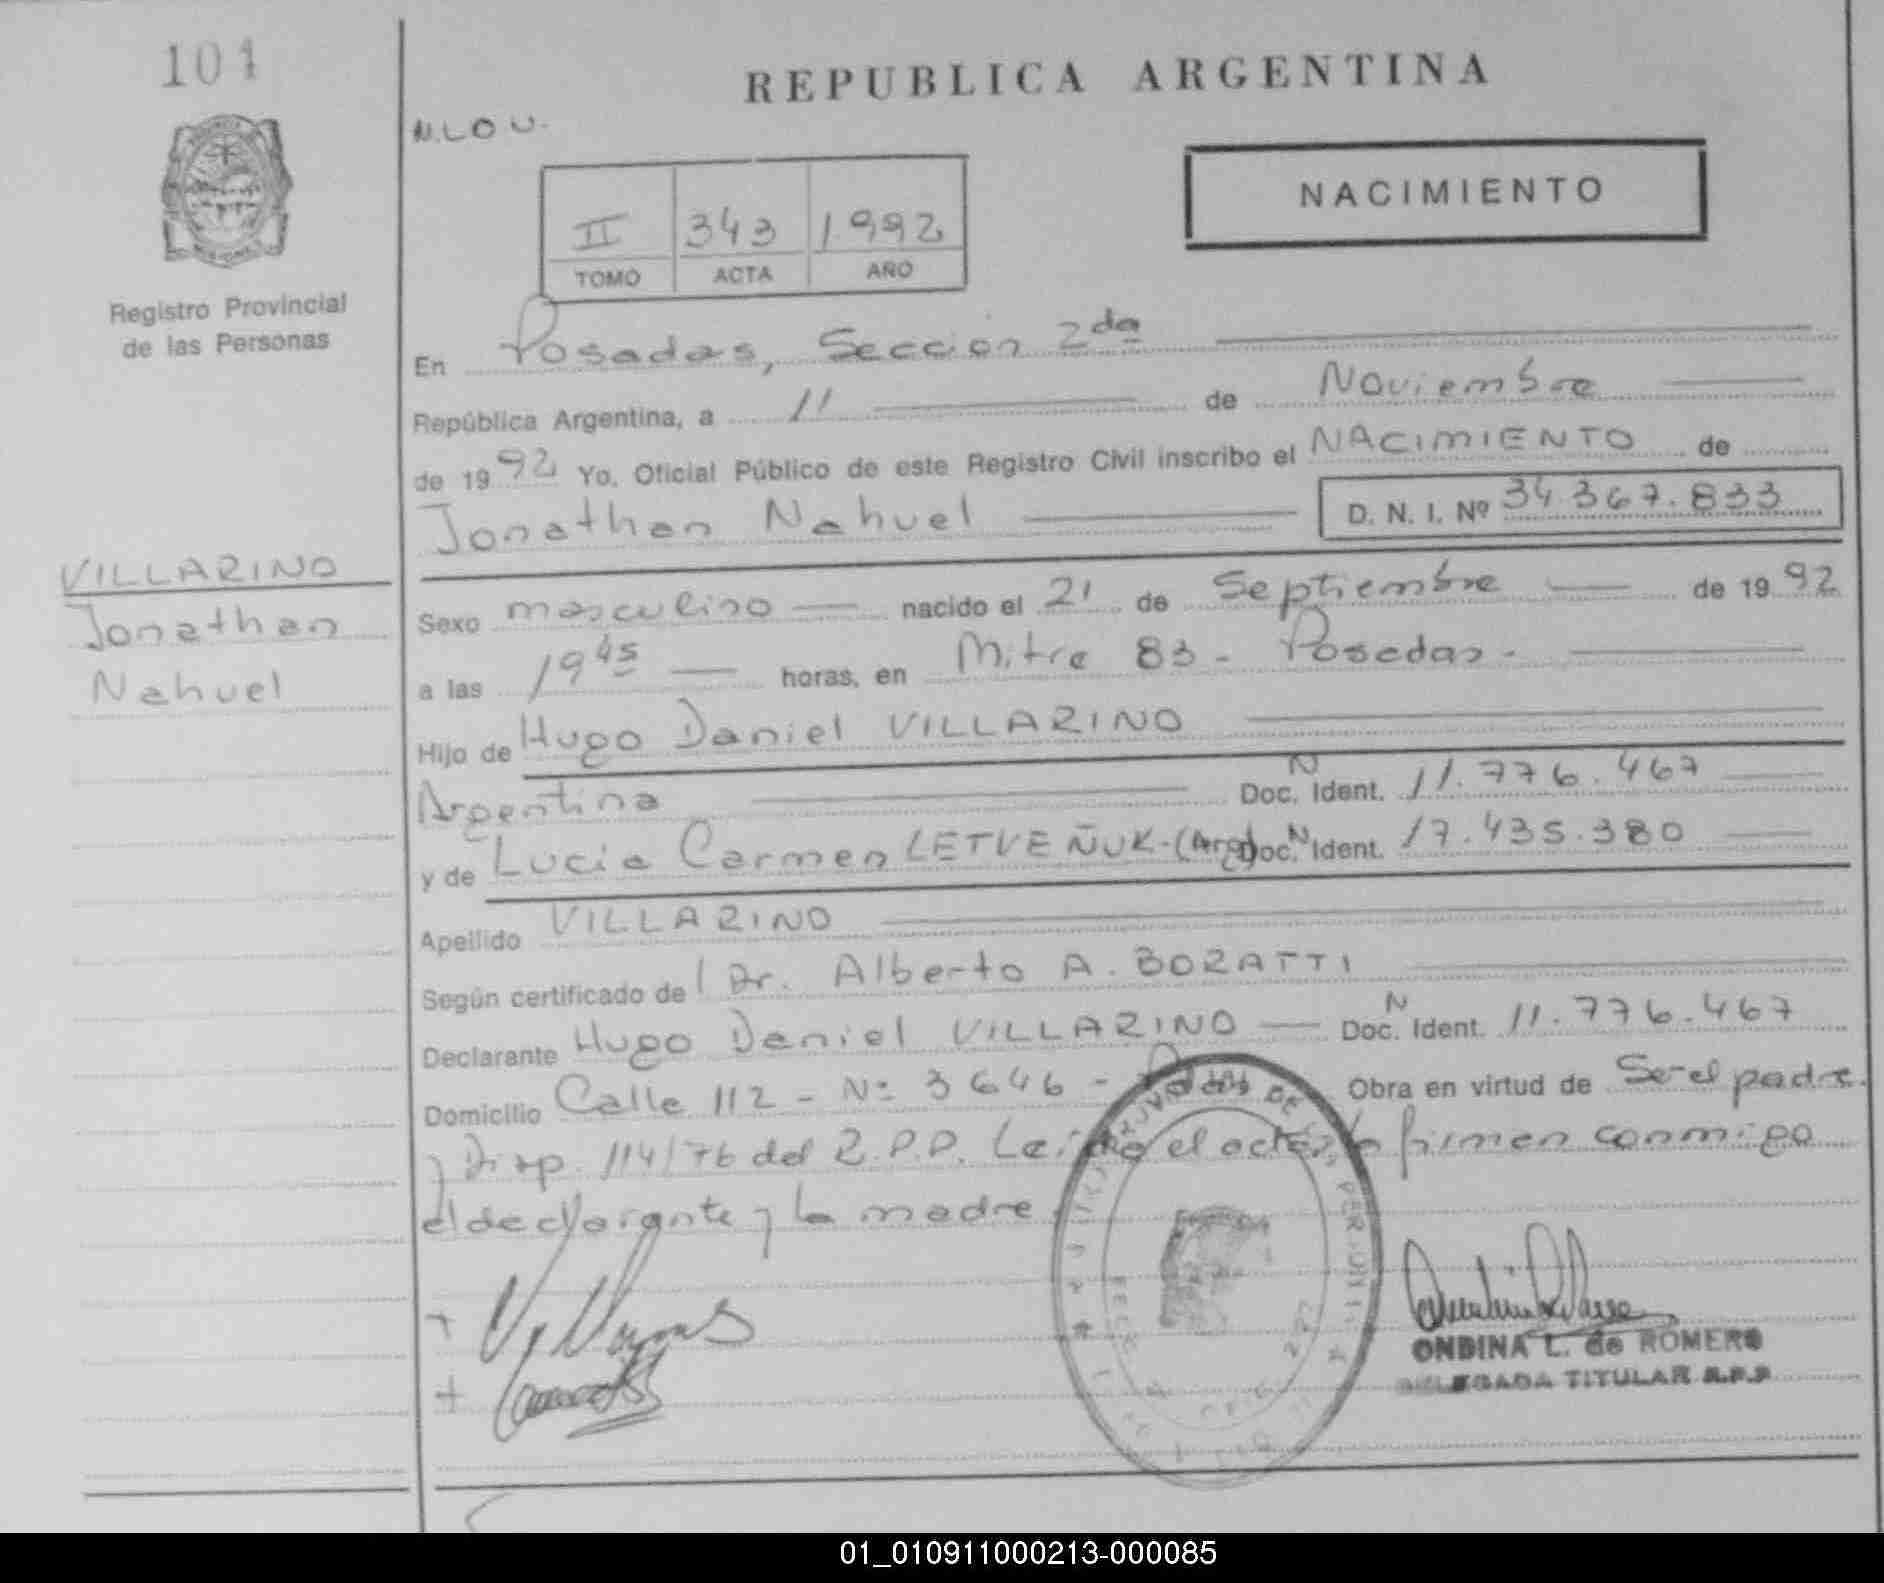 101
REPUBLICA ARGENTINA
N.LO U.
NACIMIENTO
II 343 1.992
TOMO ACTA AÑO
Registro Provincial
de las Personas
En Posadas, Sección 2da
República Argentina, a 11 de Noviembre
de 1992 Yo, Oficial Público de este Registro Civil inscribo el NACIMIENTO de
Jonathan Nahuel D. N. I. Nº 34.367.833
VILLARINO
Jonathan
Nahuel
Sexo masculino nacido el 21 de Septiembre de 1992
a las 19 45 horas, en Mitre 83 - Posadas -
Hijo de Hugo Daniel VILLARINO
Argentina Doc. N Ident. 11.776.467
y de Lucia Carmen LETVEÑUK - (Arg) Doc. N Ident. 17.435.380
Apellido VILLARINO
Según certificado del Dr. Alberto A. BORATTI
Declarante Hugo Daniel VILLARINO Doc. N Ident. 11.776.467
Domicilio Calle 112 - Nº 3646 - Obra en virtud de Ser el padre.
y Disp. 114/76 del R.P.P. Leída el acta, la firman conmigo
el declarante y la madre
ONDINA L. de ROMERO
DELEGADA TITULAR R.P.P
01_010911000213-000085